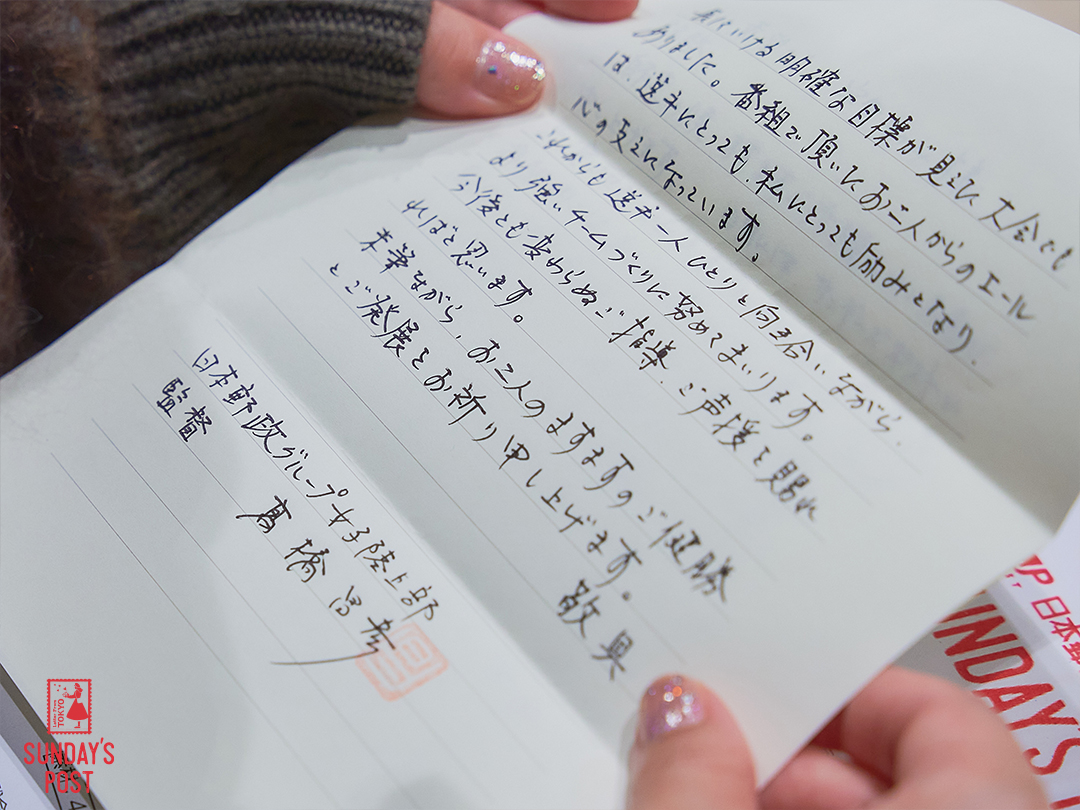 明確な目標が見えた大会でも
ありました。番組で頂いたお二人からのエール
は、選手にとっても、私にとっても励みとなり、
心の支えになっています。
これからも選手一人ひとりと向き合いながら、
より強いチームづくりに努めてまいります。
今後とも変わらぬご指導、ご声援を賜れ
ればと思います。
末筆ながら、お二人のますますのご健勝
とご発展をお祈り申し上げます。
敬具
日本郵政グループ女子陸上部
監督
髙橋昌彦
SUNDAY'S
POST
TOKYO
日本郵
SUNDAY'S